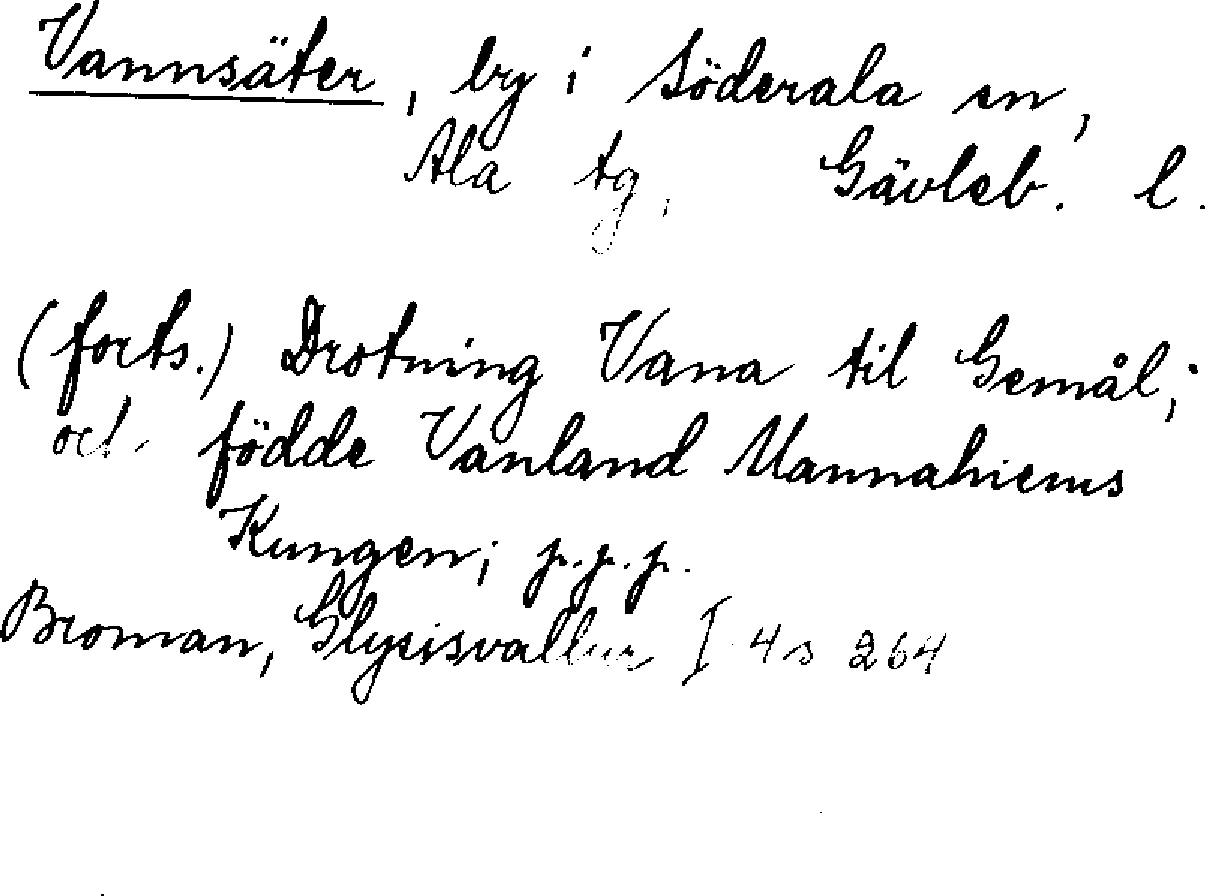 Vannsäter, by i Söderala sn,
Ala tg, Gävleb. l.
(forts.) Drotning Vana til Gemål;
och födde Vanland Mannahiems
Kungen; p.p.p.
Broman, Glysisvallur I 4 s 264